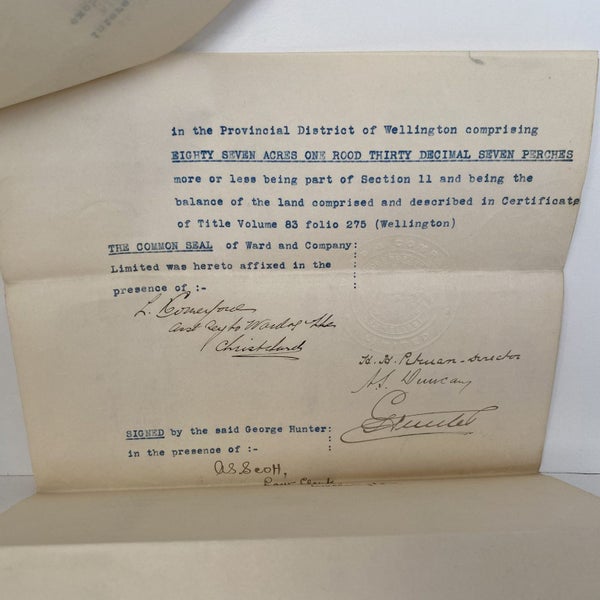 in the Provincial District of Wellington comprising
EIGHTY SEVEN ACRES ONE ROOD THIRTY DECIMAL SEVEN PERCHES
more or less being part of Section 11 and being the
balance of the land comprised and described in Certificate
of Title Volume 83 folio 275 (Wellington)
THE COMMON SEAL of Ward and Company:
Limited was hereto affixed in the :
presence of :- :
L. Comerford
to Ward & Co
Christchurch
H. H. - Director
A S. Duncan
G Hunter
SIGNED by the said George Hunter:
in the presence of :- :
AS Scott,
Law Clerk